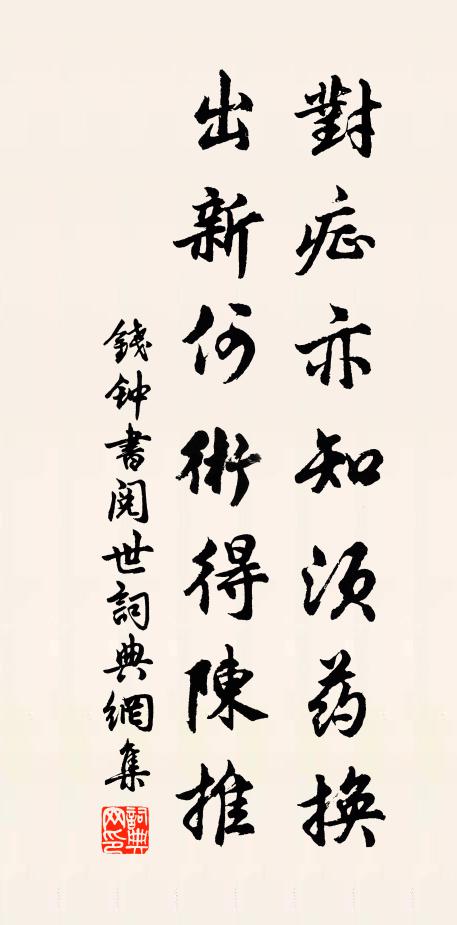 對症亦知須药換
出新何術得陳推
錢钟書閱世詞典網集
詞典網印